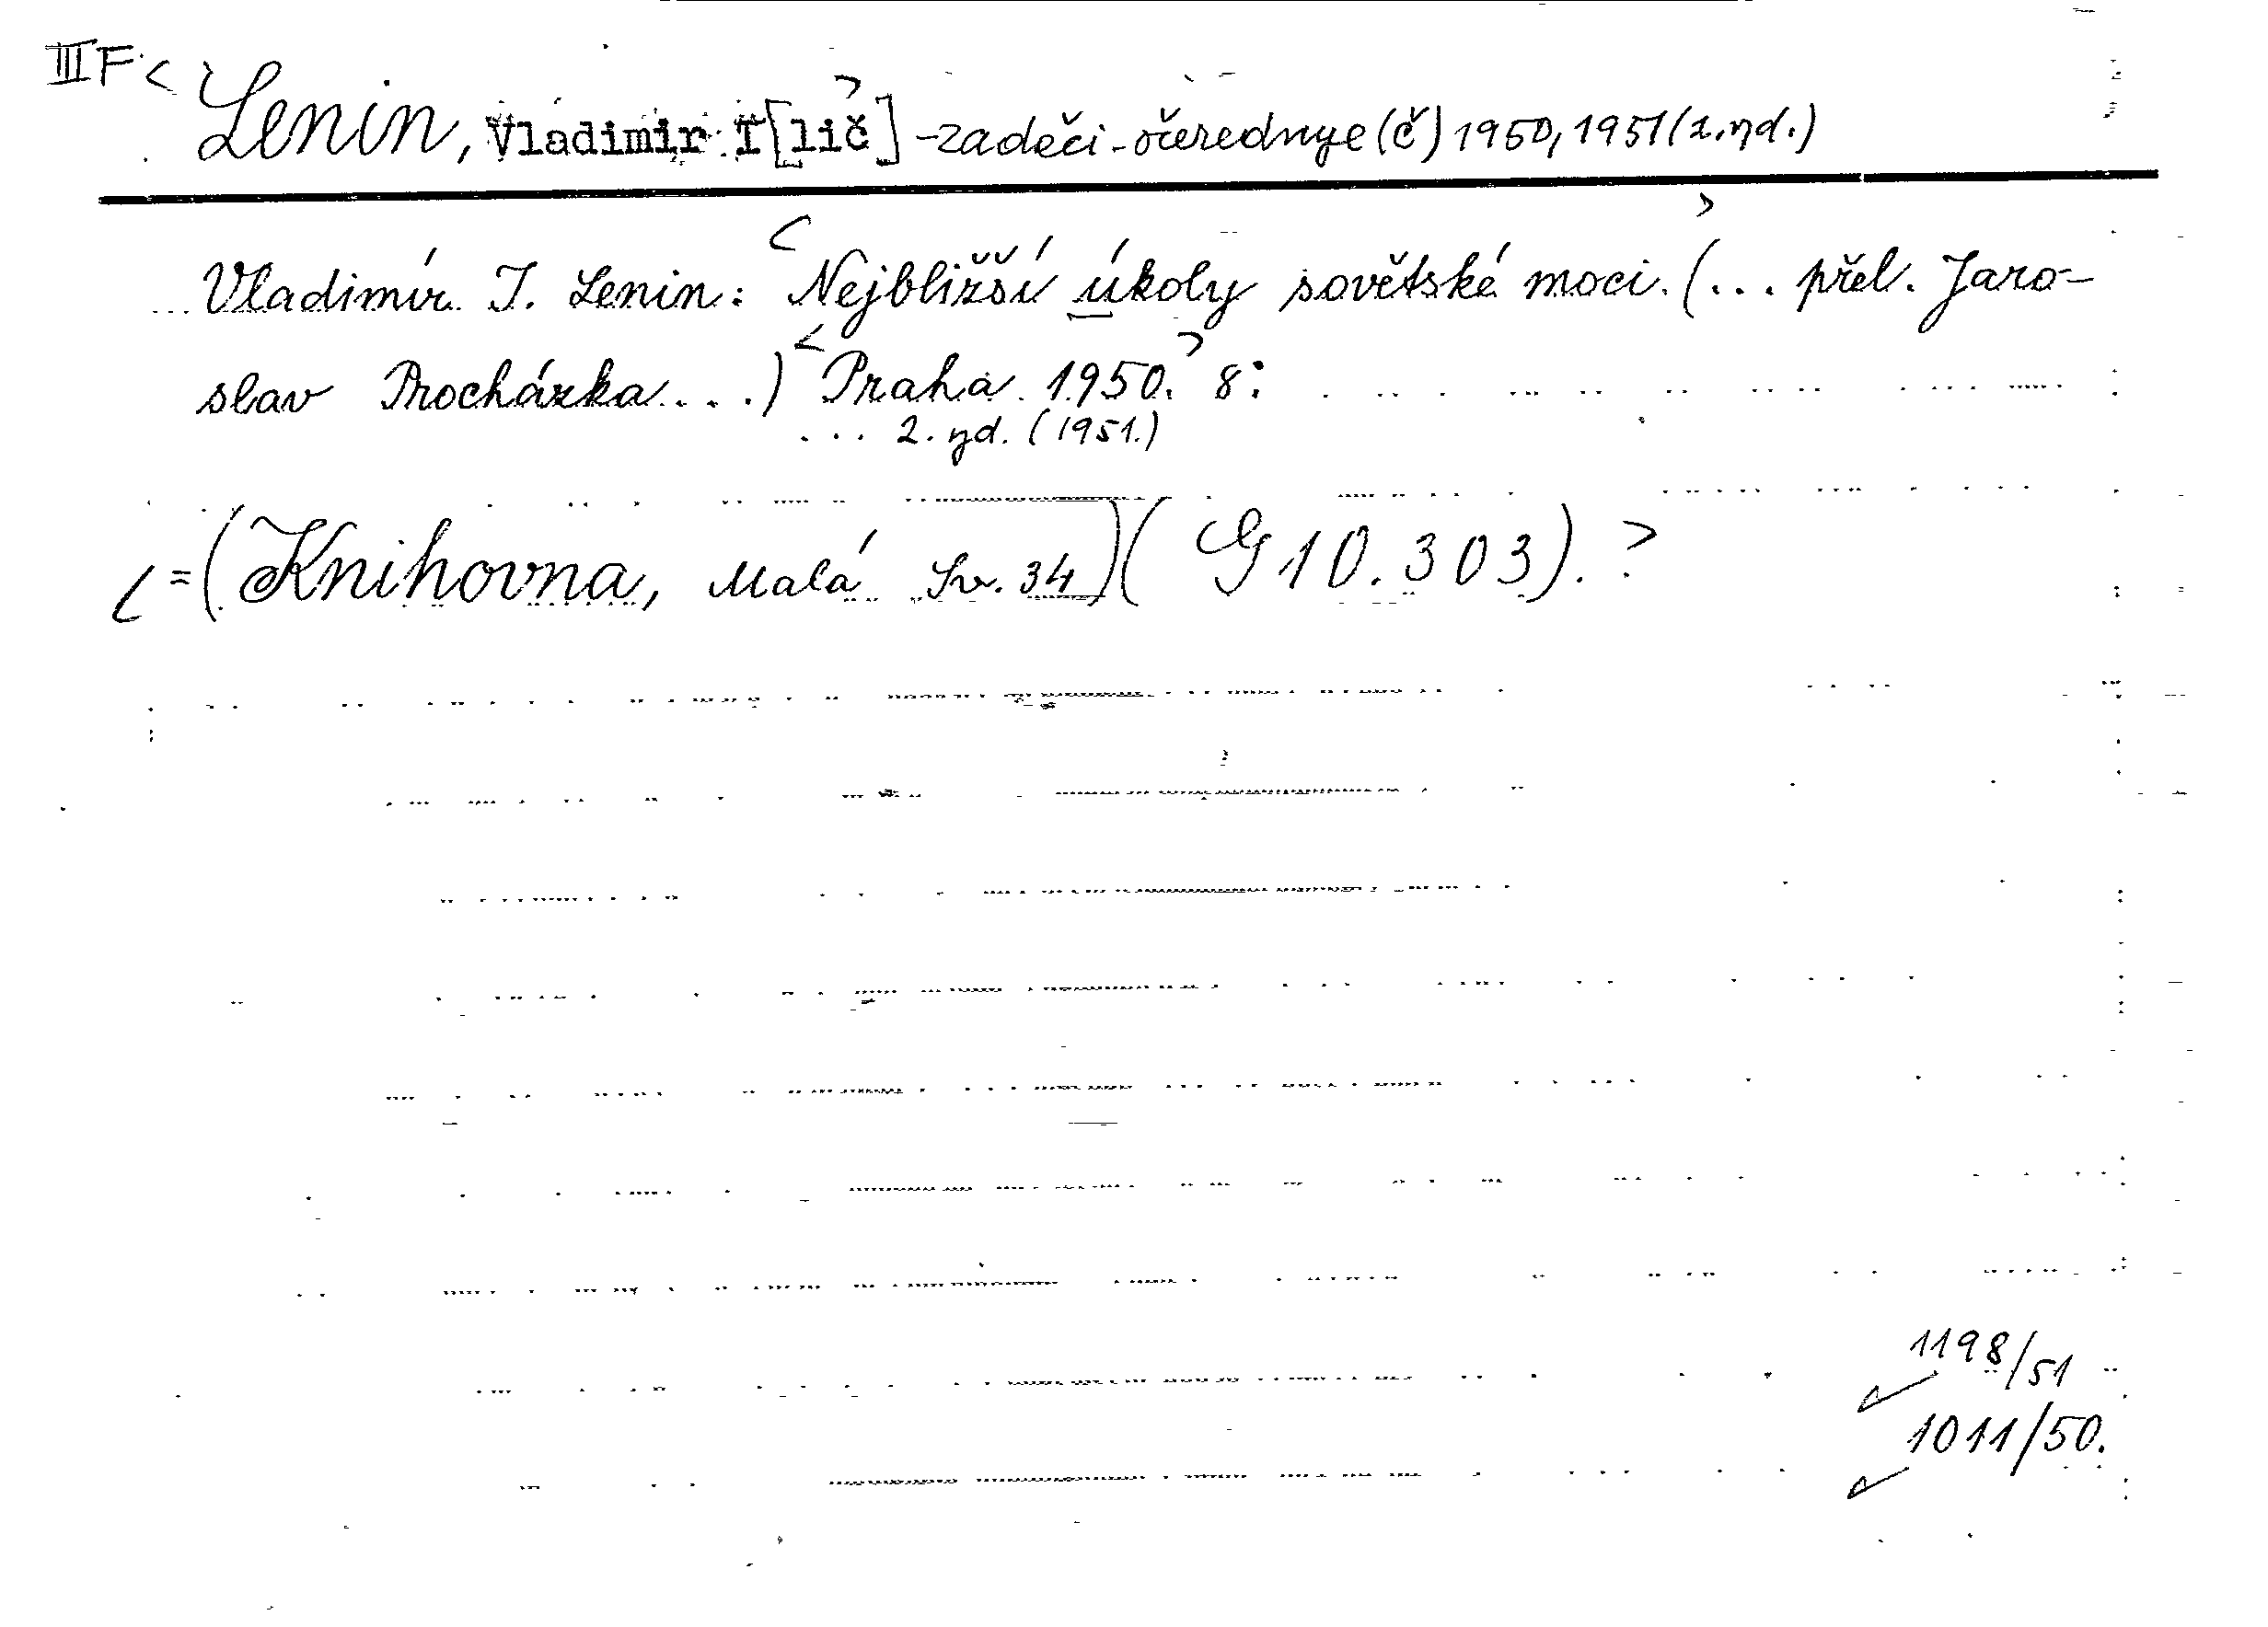 III F < Lenin, Vladimir I[lič] > -zaděči-očerednye (č) 1950, 1951 (2. yd.)
Vladimír I. Lenin: < Nejbližší úkoly sovětské moci. > (... přel. Jaro-
slav Procházka...) < Praha 1950. > 8:
... 2. yd. (1951.)
< = (Knihovna, Malá Sv. 34) (G 10.303). >
1198/51
1011/50.